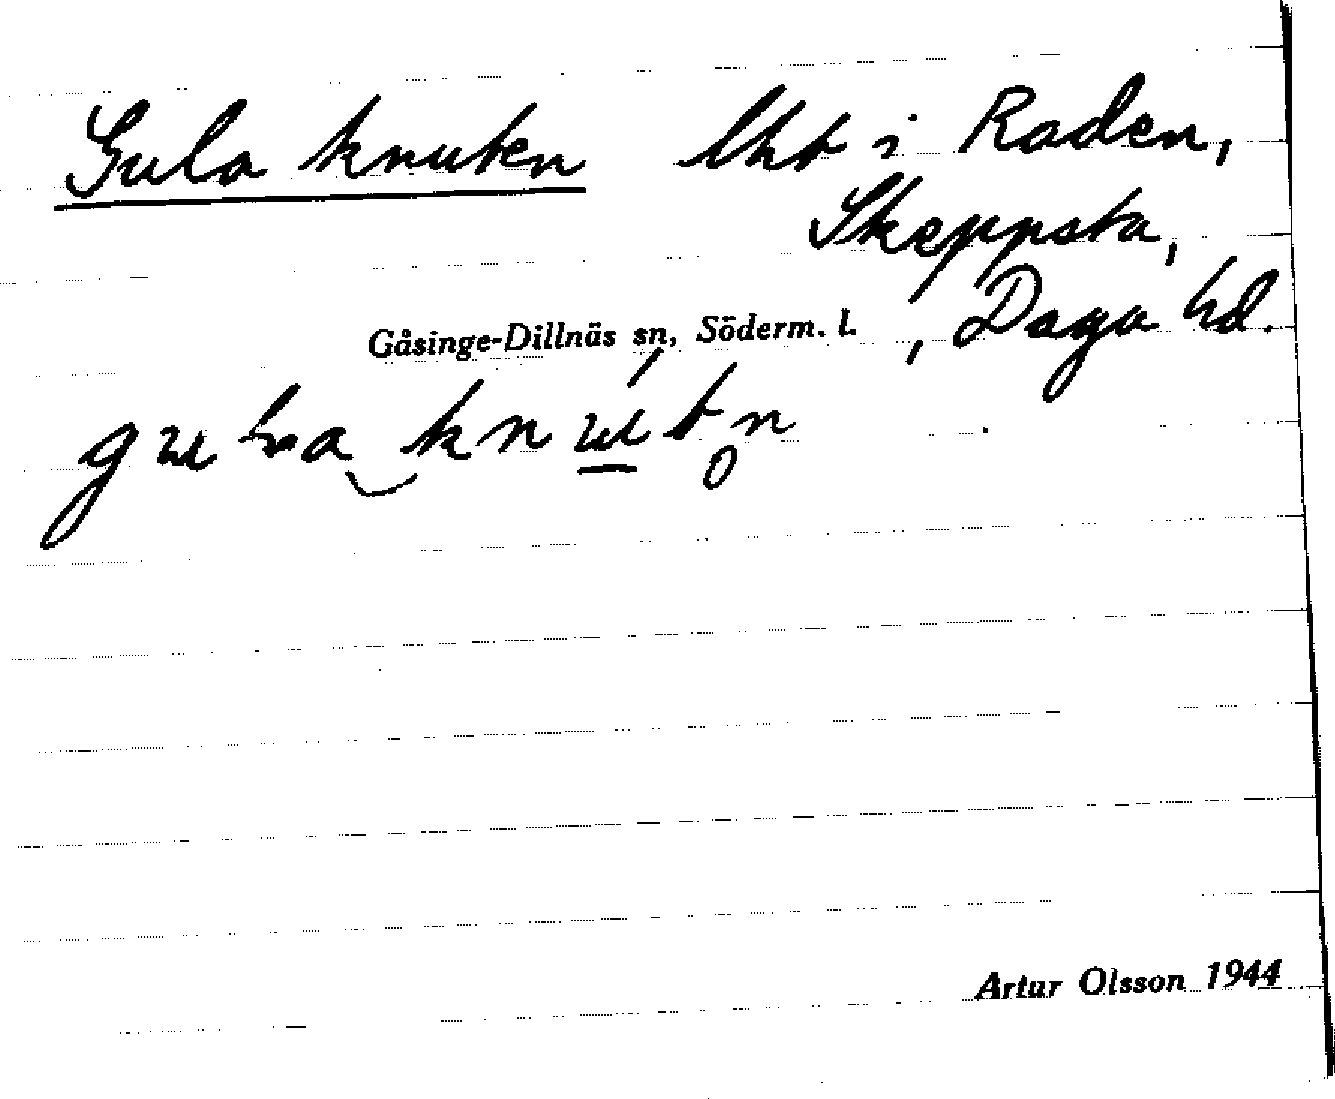 Gula knuten lht i Raden,
Skeppsta,
Gåsinge-Dillnäs sn, Söderm. l., Daga hd.
Artur Olsson 1944